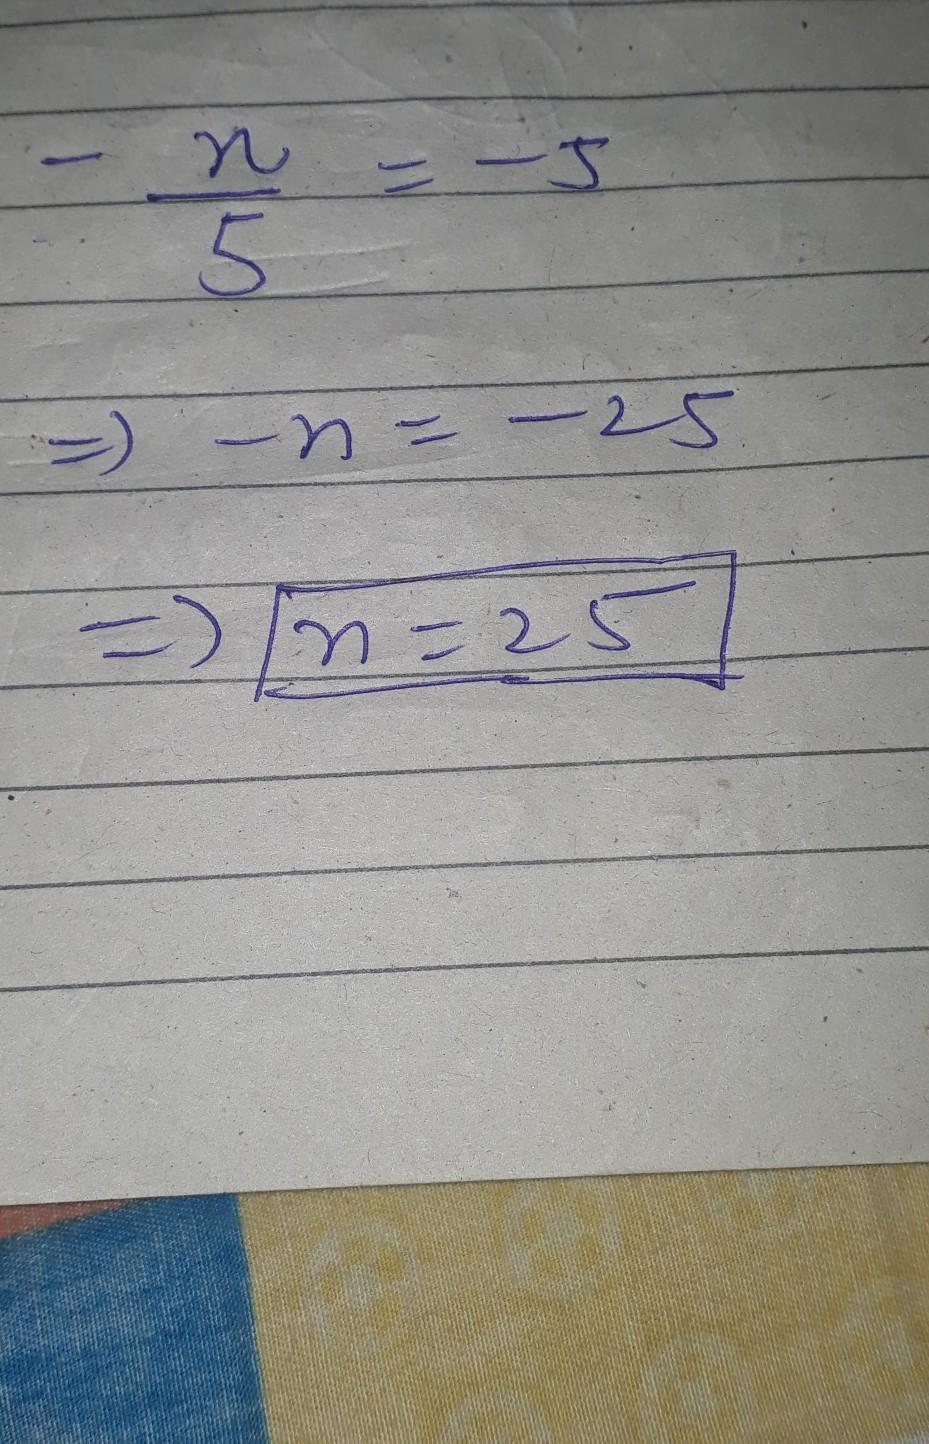 - n/5 = -5
=) -n = -25
=) n = 25